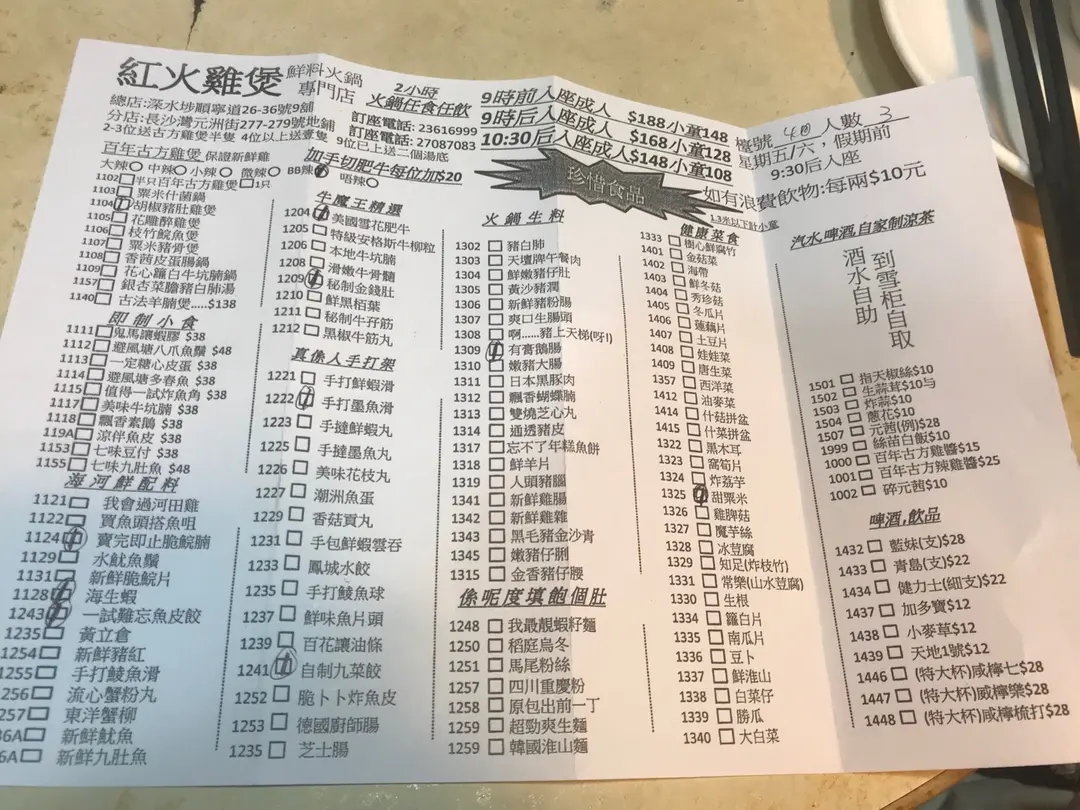 紅火雞煲 鮮料火鍋專門店
總店:深水埗順寧道26-36號9舖
分店:長沙灣元洲街277-279號地鋪
2-3位送古方雞煲半隻 4位以上送壹隻
2小時
火鍋任食任飲
訂座電話: 23616999
訂座電話: 27087083
9位已上送二個湯底
加手切肥牛每位加$20
9時前入座成人$188小童148
9時后入座成人$168小童128
10:30后入座成人$148小童108
珍惜食品
1.3米以下計小童
檯號 人數 3
星期五/六，假期前
9:30后入座
如有浪費飲物:每兩$10元
百年古方雞煲 保證新鮮雞
大辣 中辣 小辣 微辣 BB辣 唔辣
1102 半只百年古方雞煲 1只
1103 粟米什菌鍋
1104 胡椒豬肚雞煲
1105 花雕醉雞煲
1106 枝竹鯇魚煲
1107 粟米豬骨煲
1108 香茜皮蛋腸鍋
1109 花心蘿白牛坑腩鍋
1157 銀杏菜膽豬白肺湯
1140 古法羊腩煲.....$138
即制小食
1111 鬼馬讓蝦膠 $38
1112 避風塘八爪魚鬚 $48
1113 一定糖心皮蛋 $38
1114 避風塘多春魚 $38
1115 值得一試炸魚角 $38
1117 美味牛坑腩 $38
1118 飄香素鵝 $38
119A 涼伴魚皮 $38
1153 七味豆付 $38
1155 七味九肚魚 $48
海河鮮配料
1121 我會過河田雞
1122 買魚頭搭魚咀
1124 賣完即止脆鯇腩
1129 水魷魚鬚
1131 新鮮脆鯇片
1128 海生蝦
1243 一試難忘魚皮餃
1235 黃立倉
1254 新鮮豬紅
1255 手打鯪魚滑
1256 流心蟹粉丸
1257 東洋蟹柳
36A 新鮮魷魚
6A 新鮮九肚魚
牛魔王精選
1204 美國雪花肥牛
1205 特級安格斯牛柳粒
1206 本地牛坑腩
1208 滑嫩牛骨髓
1209 秘制金錢肚
1210 鮮黑栢葉
1211 秘制牛孖筋
1212 黑椒牛筋丸
真係人手打架
1221 手打鮮蝦滑
1222 手打墨魚滑
1223 手撻鮮蝦丸
1225 手撻墨魚丸
1226 美味花枝丸
1227 潮洲魚蛋
1229 香菇貢丸
1231 手包鮮蝦雲吞
1233 鳳城水餃
1235 手打鯪魚球
1237 鮮味魚片頭
1239 百花讓油條
1241 自制九菜餃
1252 脆卜卜炸魚皮
1253 德國廚師腸
1235 芝士腸
火鍋生料
1302 豬白肺
1303 天壇牌午餐肉
1304 鮮嫩豬仔肚
1305 黃沙豬潤
1306 新鮮豬粉腸
1307 爽口生腸頭
1308 啊......豬上天梯(呀!)
1309 有膏鵝腸
1310 嫩豬大腸
1311 日本黑豚肉
1312 飄香蝴蝶腩
1313 雙燒芝心丸
1314 通透豬皮
1317 忘不了年糕魚餅
1318 鮮羊片
1319 人頭豬腦
1341 新鮮雞腸
1342 新鮮雞雜
1343 黑毛豬金沙青
1345 嫩豬仔脷
1315 金香豬仔腰
係呢度填飽個肚
1248 我最靚蝦籽麵
1250 稻庭烏冬
1251 馬尾粉絲
1257 四川重慶粉
1258 原包出前一丁
1259 超勁爽生麵
1259 韓國淮山麵
健康菜食
1333 樹心鮮腐竹
1401 金菇菜
1402 海帶
1403 鮮冬菇
1404 秀珍菇
1405 冬瓜片
1406 蓮藕片
1407 土豆片
1408 娃娃菜
1409 唐生菜
1357 西洋菜
1412 油麥菜
1414 什菇拼盆
1415 什菜拼盆
1322 黑木耳
1323 窩筍片
1324 炸荔芋
1325 甜粟米
1326 雞脾菇
1327 魔芋絲
1328 冰豆腐
1329 知足(炸枝竹)
1331 常樂(山水豆腐)
1330 生根
1334 蘿白片
1335 南瓜片
1336 豆卜
1337 鮮淮山
1338 白菜仔
1339 勝瓜
1340 大白菜
汽水,啤酒,自家制涼茶
到雪柜自取
酒水自助
1501 指天椒絲$10
1502 生蒜茸$10与
1503 炸蒜$10
1504 蔥花$10
1507 元茜(例)$28
1999 絲苗白飯$10
1000 百年古方雞醬$15
1001 百年古方辣雞醬$25
1002 碎元茜$10
啤酒,飲品
1432 藍妹(支)$28
1433 青島(支)$22
1434 健力士(細支)$22
1437 加多寶$12
1438 小麥草$12
1439 天地1號$12
1446 (特大杯)咸檸七$28
1447 (特大杯)咸檸樂$28
1448 (特大杯)咸檸梳打$28